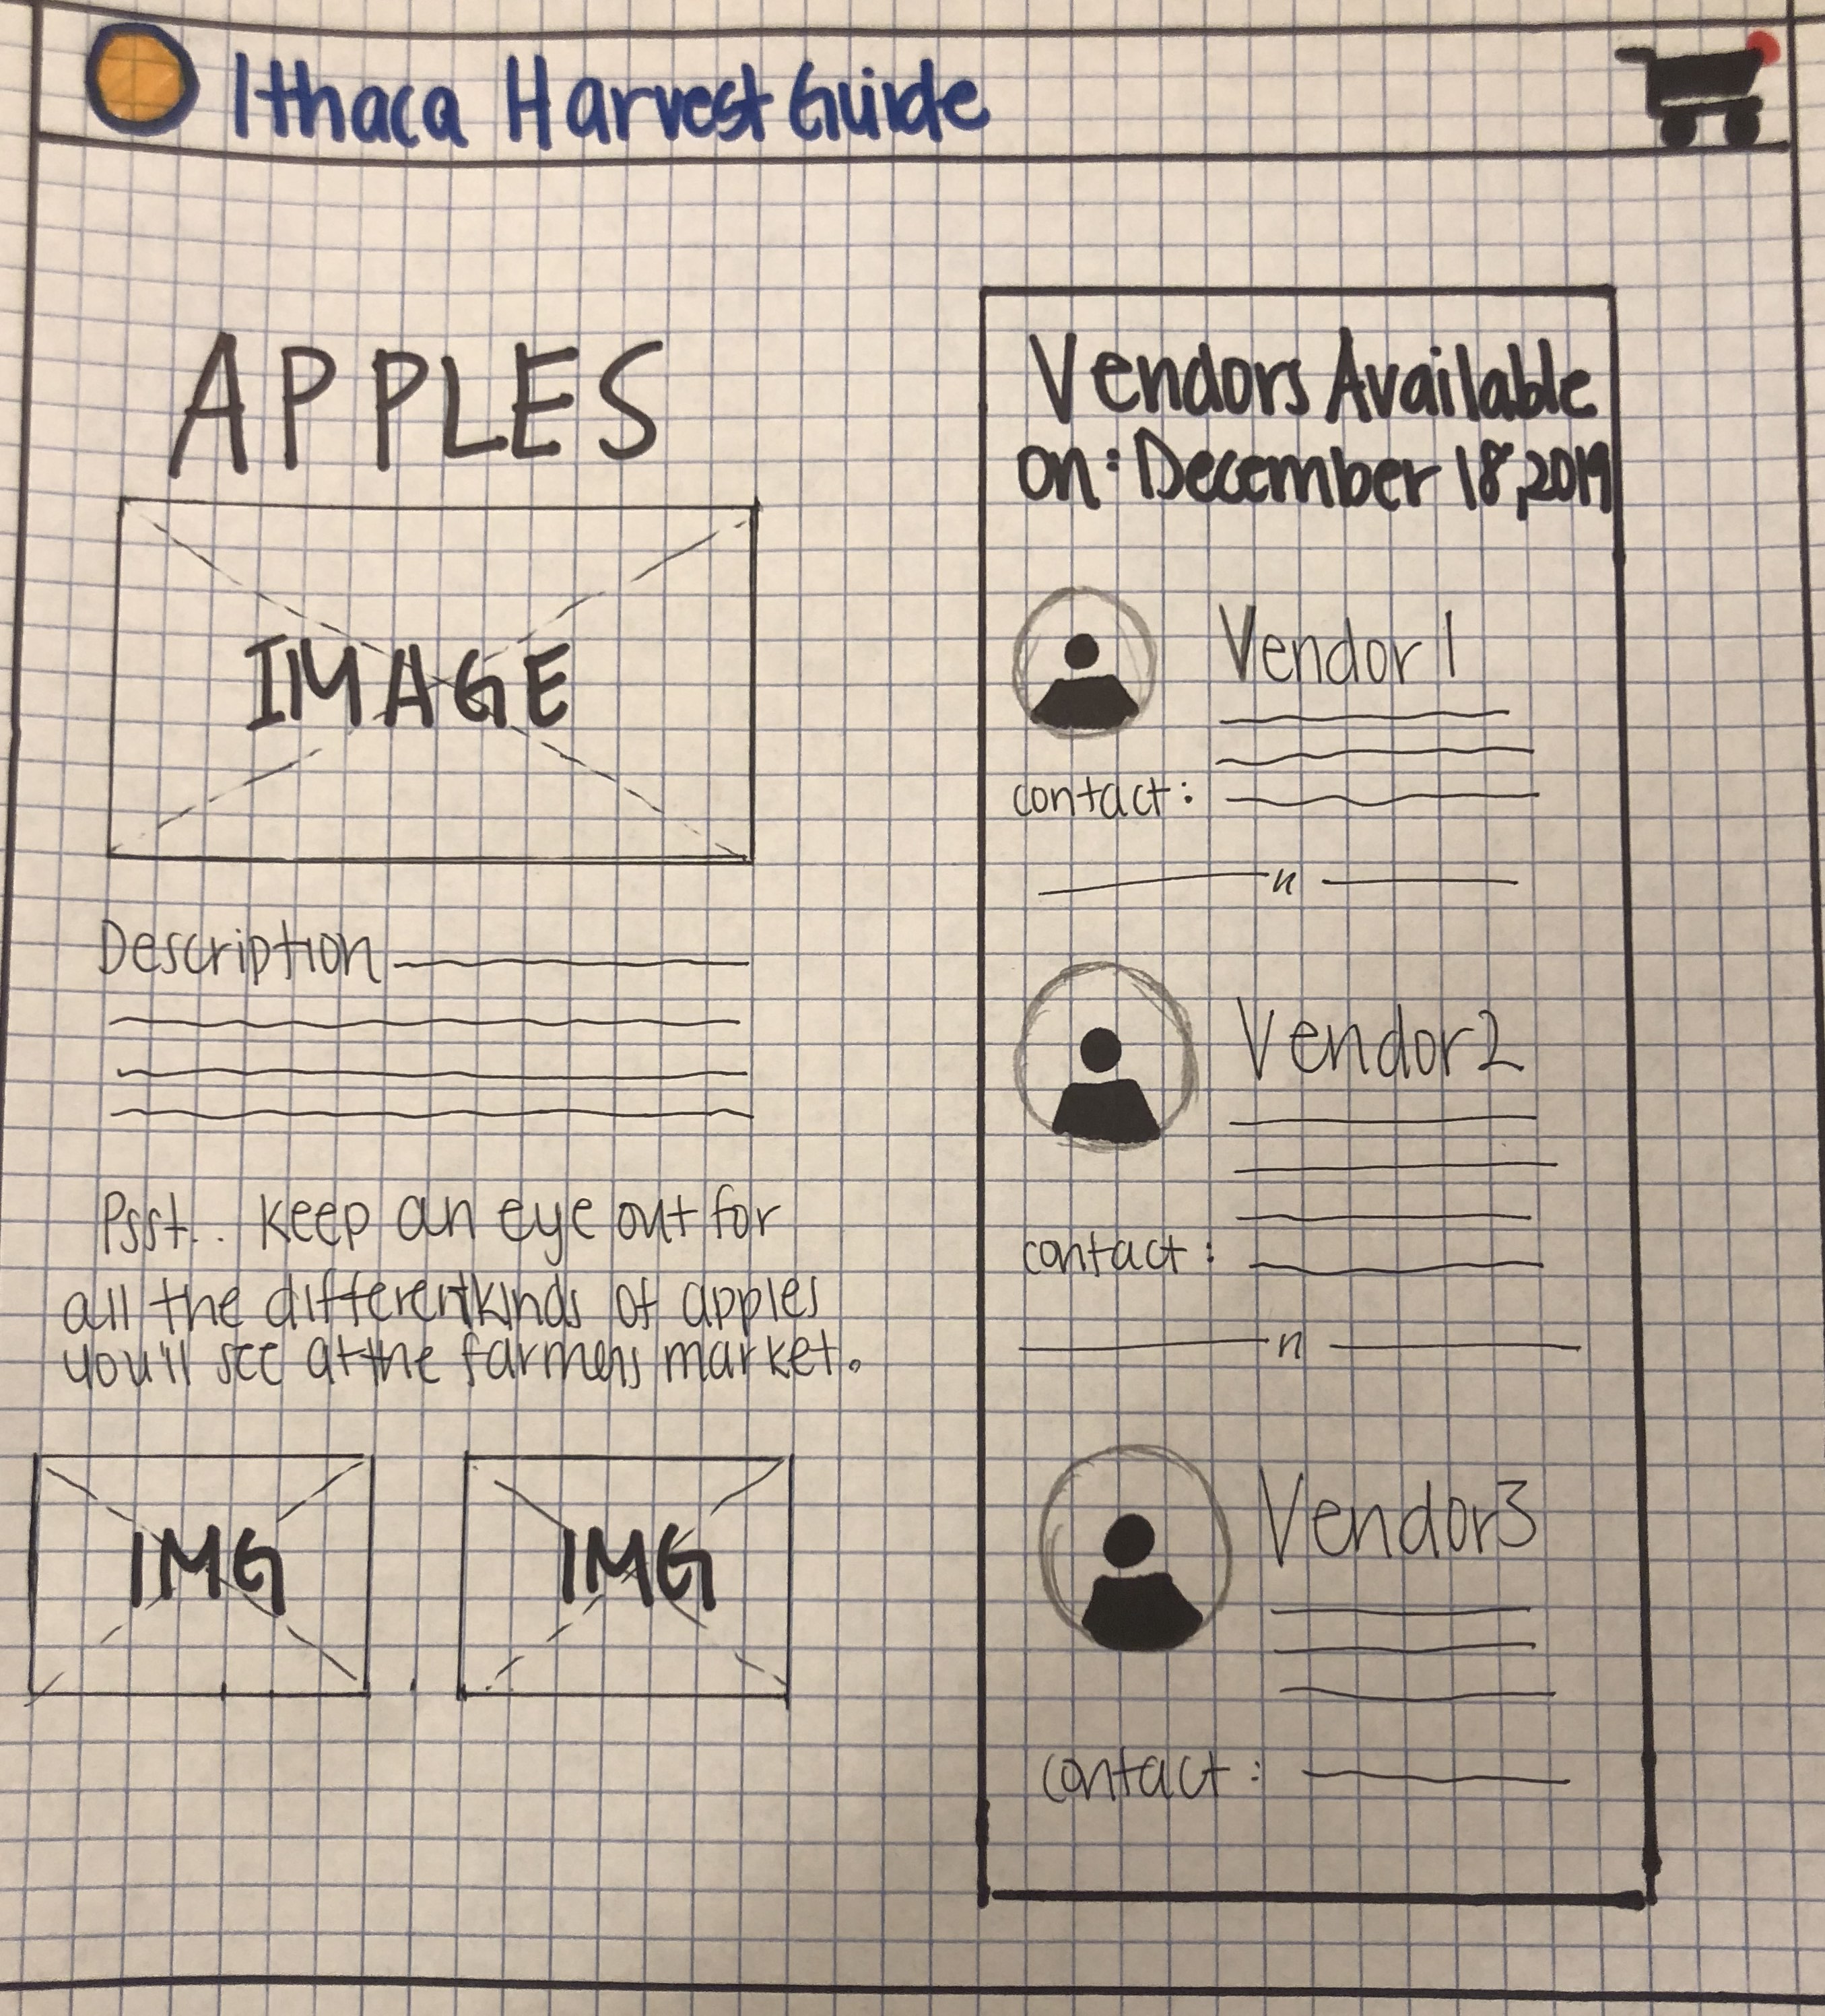 Ithaca Harvest Guide
APPLES
IMAGE
Description
Psst... keep an eye out for
all the different kinds of apples
you'll see at the farmers market.
IMG
IMG
Vendors Available
on: December 18, 2019
Vendor 1
contact:
n
Vendor 2
contact:
n
Vendor 3
contact: